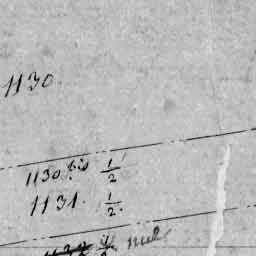 1130.
1130 bis 1/2
1131. 1/2.
nul